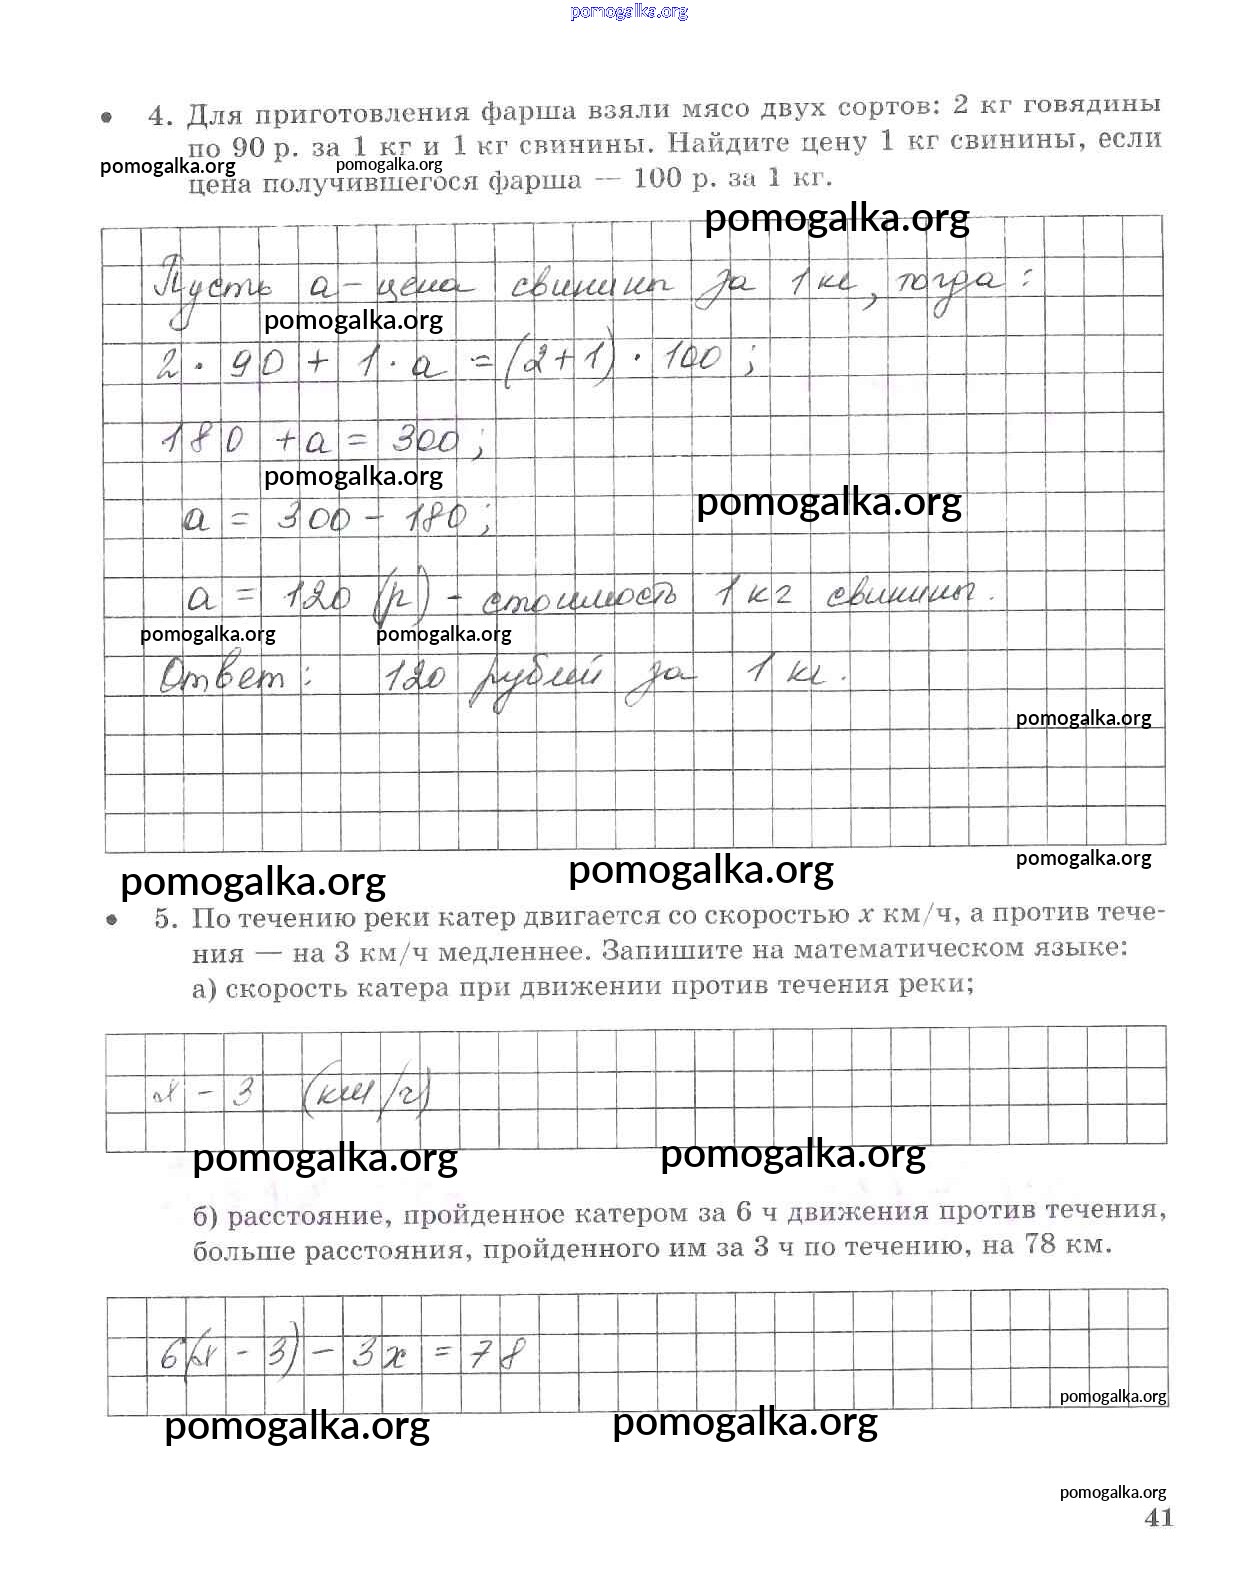 pomogalka.org
• 4. Для приготовления фарша взяли мясо двух сортов: 2 кг говядины
по 90 р. за 1 кг и 1 кг свинины. Найдите цену 1 кг свинины, если
pomogalka.org pomogalka.org
цена получившегося фарша — 100 р. за 1 кг.
pomogalka.org
Пусть a - цена свинины за 1 кг, тогда:
pomogalka.org
2 · 90 + 1 · a = (2+1) · 100 ;
180 + a = 300 ;
pomogalka.org
pomogalka.org
a = 300 - 180 ;
a = 120 (р) - стоимость 1 кг свинины.
pomogalka.org pomogalka.org
Ответ: 120 рублей за 1 кг.
pomogalka.org
pomogalka.org
pomogalka.org pomogalka.org
• 5. По течению реки катер двигается со скоростью x км/ч, а против тече-
ния — на 3 км/ч медленнее. Запишите на математическом языке:
а) скорость катера при движении против течения реки;
x - 3 (км/ч)
pomogalka.org pomogalka.org
б) расстояние, пройденное катером за 6 ч движения против течения,
больше расстояния, пройденного им за 3 ч по течению, на 78 км.
6(x - 3) - 3x = 78
pomogalka.org
pomogalka.org pomogalka.org
pomogalka.org
41